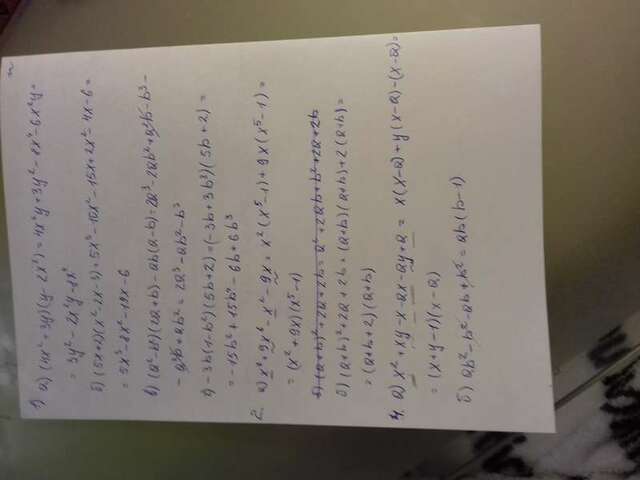 1) а) (4x²+3y)(y-2x²)=4x²y+3y²-8x⁴-6x²y=
=3y²-2x²y-8x⁴
б) (5x+2)(x²-2x-3)=5x³-10x²-15x+2x²-4x-6=
=5x³-8x²-19x-6
в) (a²-b²)(2a+b)-ab(a-b)=2a³-2ab²+a²b-b³-
-a²b+ab²=2a³-ab²-b³
г) -3b(1-b²)(5b+2)=(-3b+3b³)(5b+2)=
=-15b²+15b⁴-6b+6b³
2. а) x⁷+9x⁶-x²-9x=x²(x⁵-1)+9x(x⁵-1)=
=(x²+9x)(x⁵-1)
б) (a+b)²+2a+2b=a²+2ab+b²+2a+2b
б) (a+b)²+2a+2b=(a+b)(a+b)+2(a+b)=
=(a+b+2)(a+b)
4. а) x²+xy-x-ax-ay+a=x(x-a)+y(x-a)-(x-a)=
=(x+y-1)(x-a)
б) ab²-b²-ab+b²=ab(b-1)